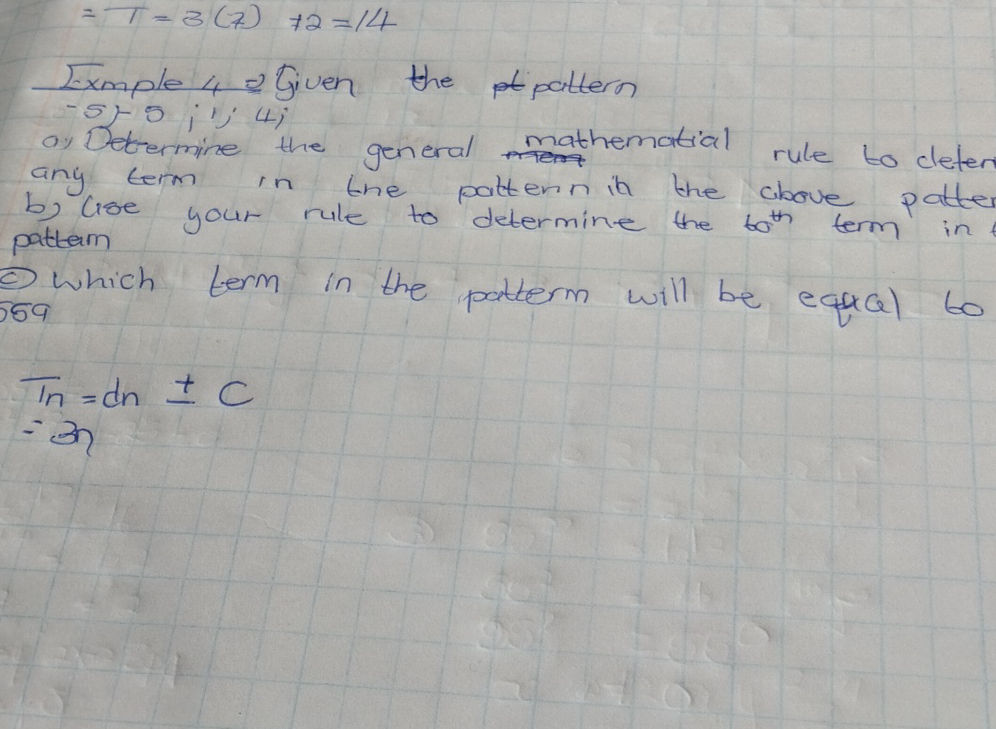 = T = 3(7) +2 = 14
Exmple 4 => Given the pattern
-5; - 5 ; 1; 4;
a) Determine the general mathematial rule to deter
any term in the pattern in the above patter
b) Use your rule to determine the 60th term in
pattern
c) Which term in the patterm will be equal to
569
Tn = dn ± C
= 3n